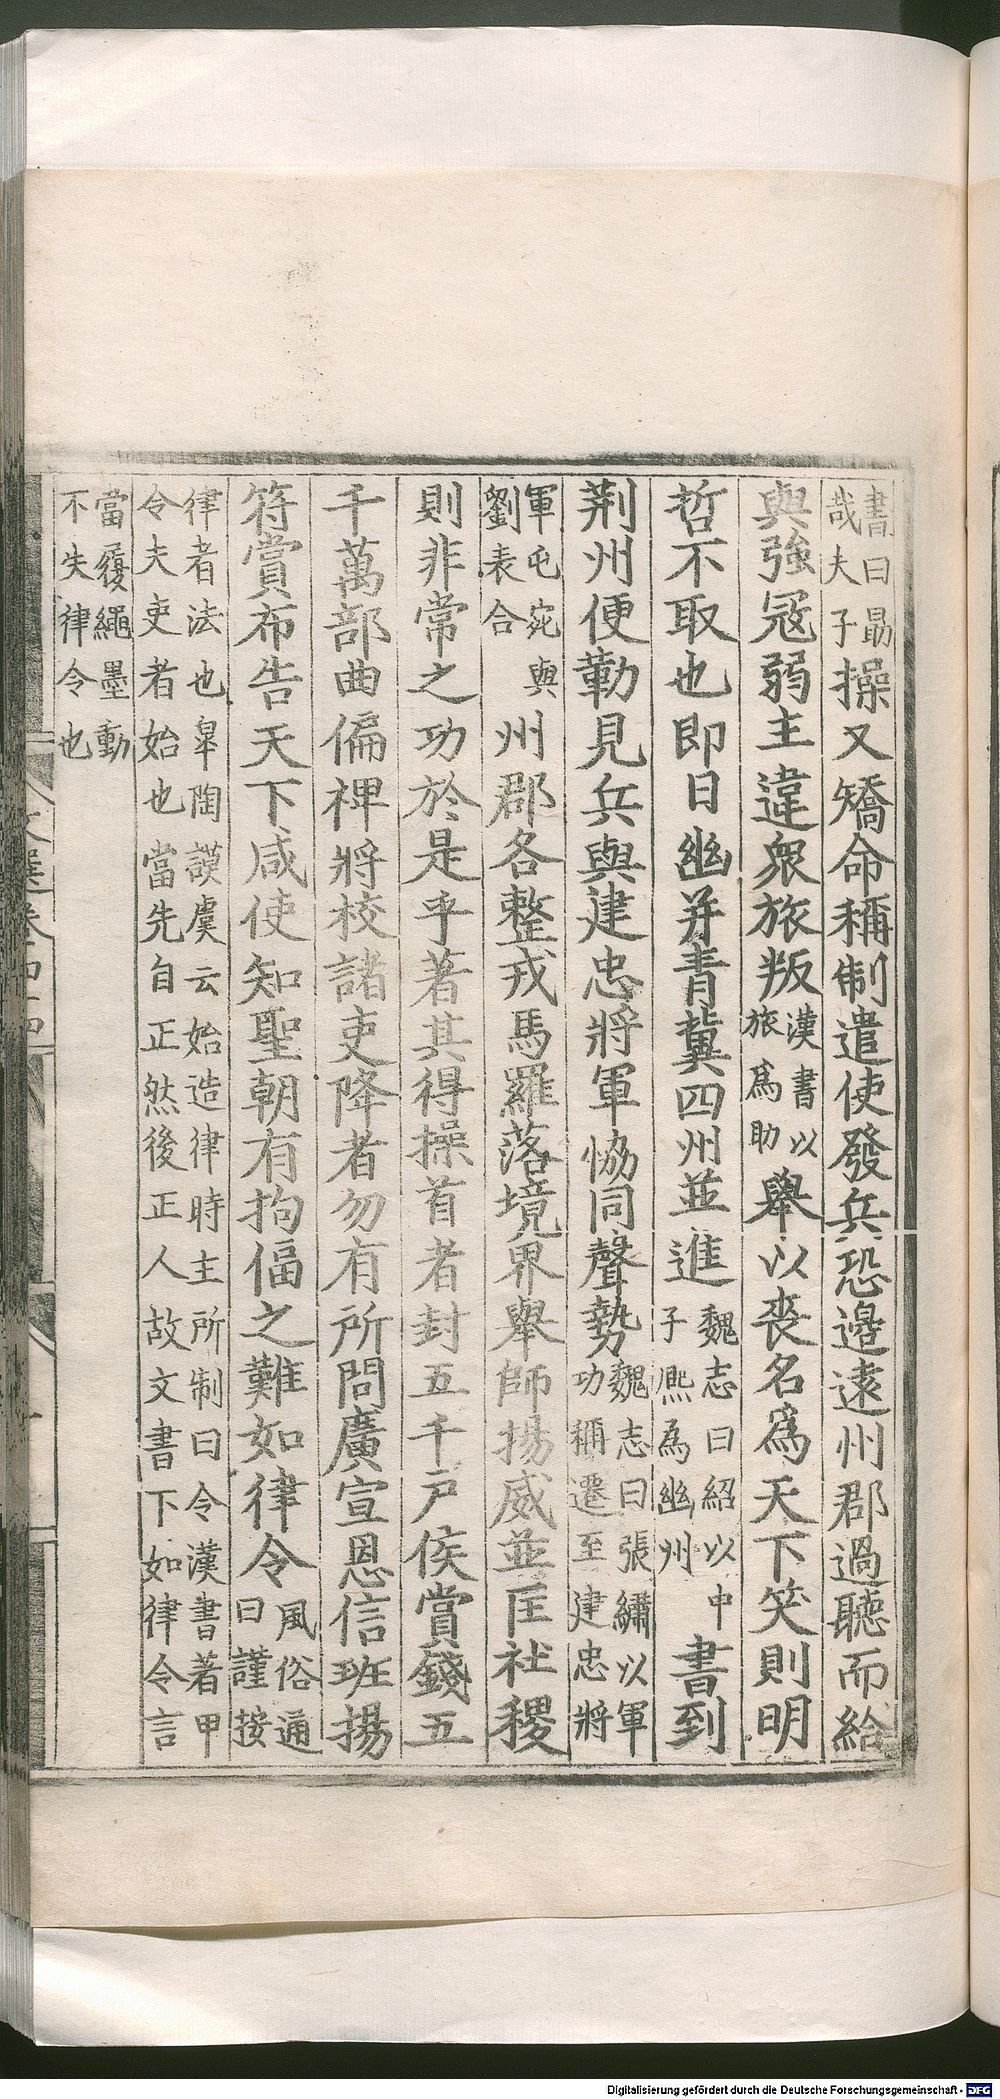 書曰勗
哉夫子操又矯命稱制遣使發兵恐邊遠州郡過聽而給
與強冦弱主違衆旅叛漢書以
旅爲助舉以喪名爲天下笑則明
哲不取也即日幽并青冀四州並進魏志曰紹以中
子熈為幽州書到
荆州便勒見兵與建忠將軍恊同聲勢魏志曰張繡以軍
功稱遷至建忠將
軍屯宛與
劉表合州郡各整戎馬羅落境界舉師揚威並匡社稷
則非常之功於是乎著其得操首者封五千戶侯賞錢五
千萬部曲偏裨將校諸吏降者勿有所問廣宣恩信班揚
符賞布告天下咸使知聖朝有拘偪之難如律令風俗通
曰謹按
律者法也皐陶謨虞云始造律時主所制曰令漢書著甲
令夫吏者始也當先自正然後正人故文書下如律令言
當履繩墨動
不失律令也
文選卷四十四
Digitalisierung gefördert durch die Deutsche Forschungsgemeinschaft - DFG